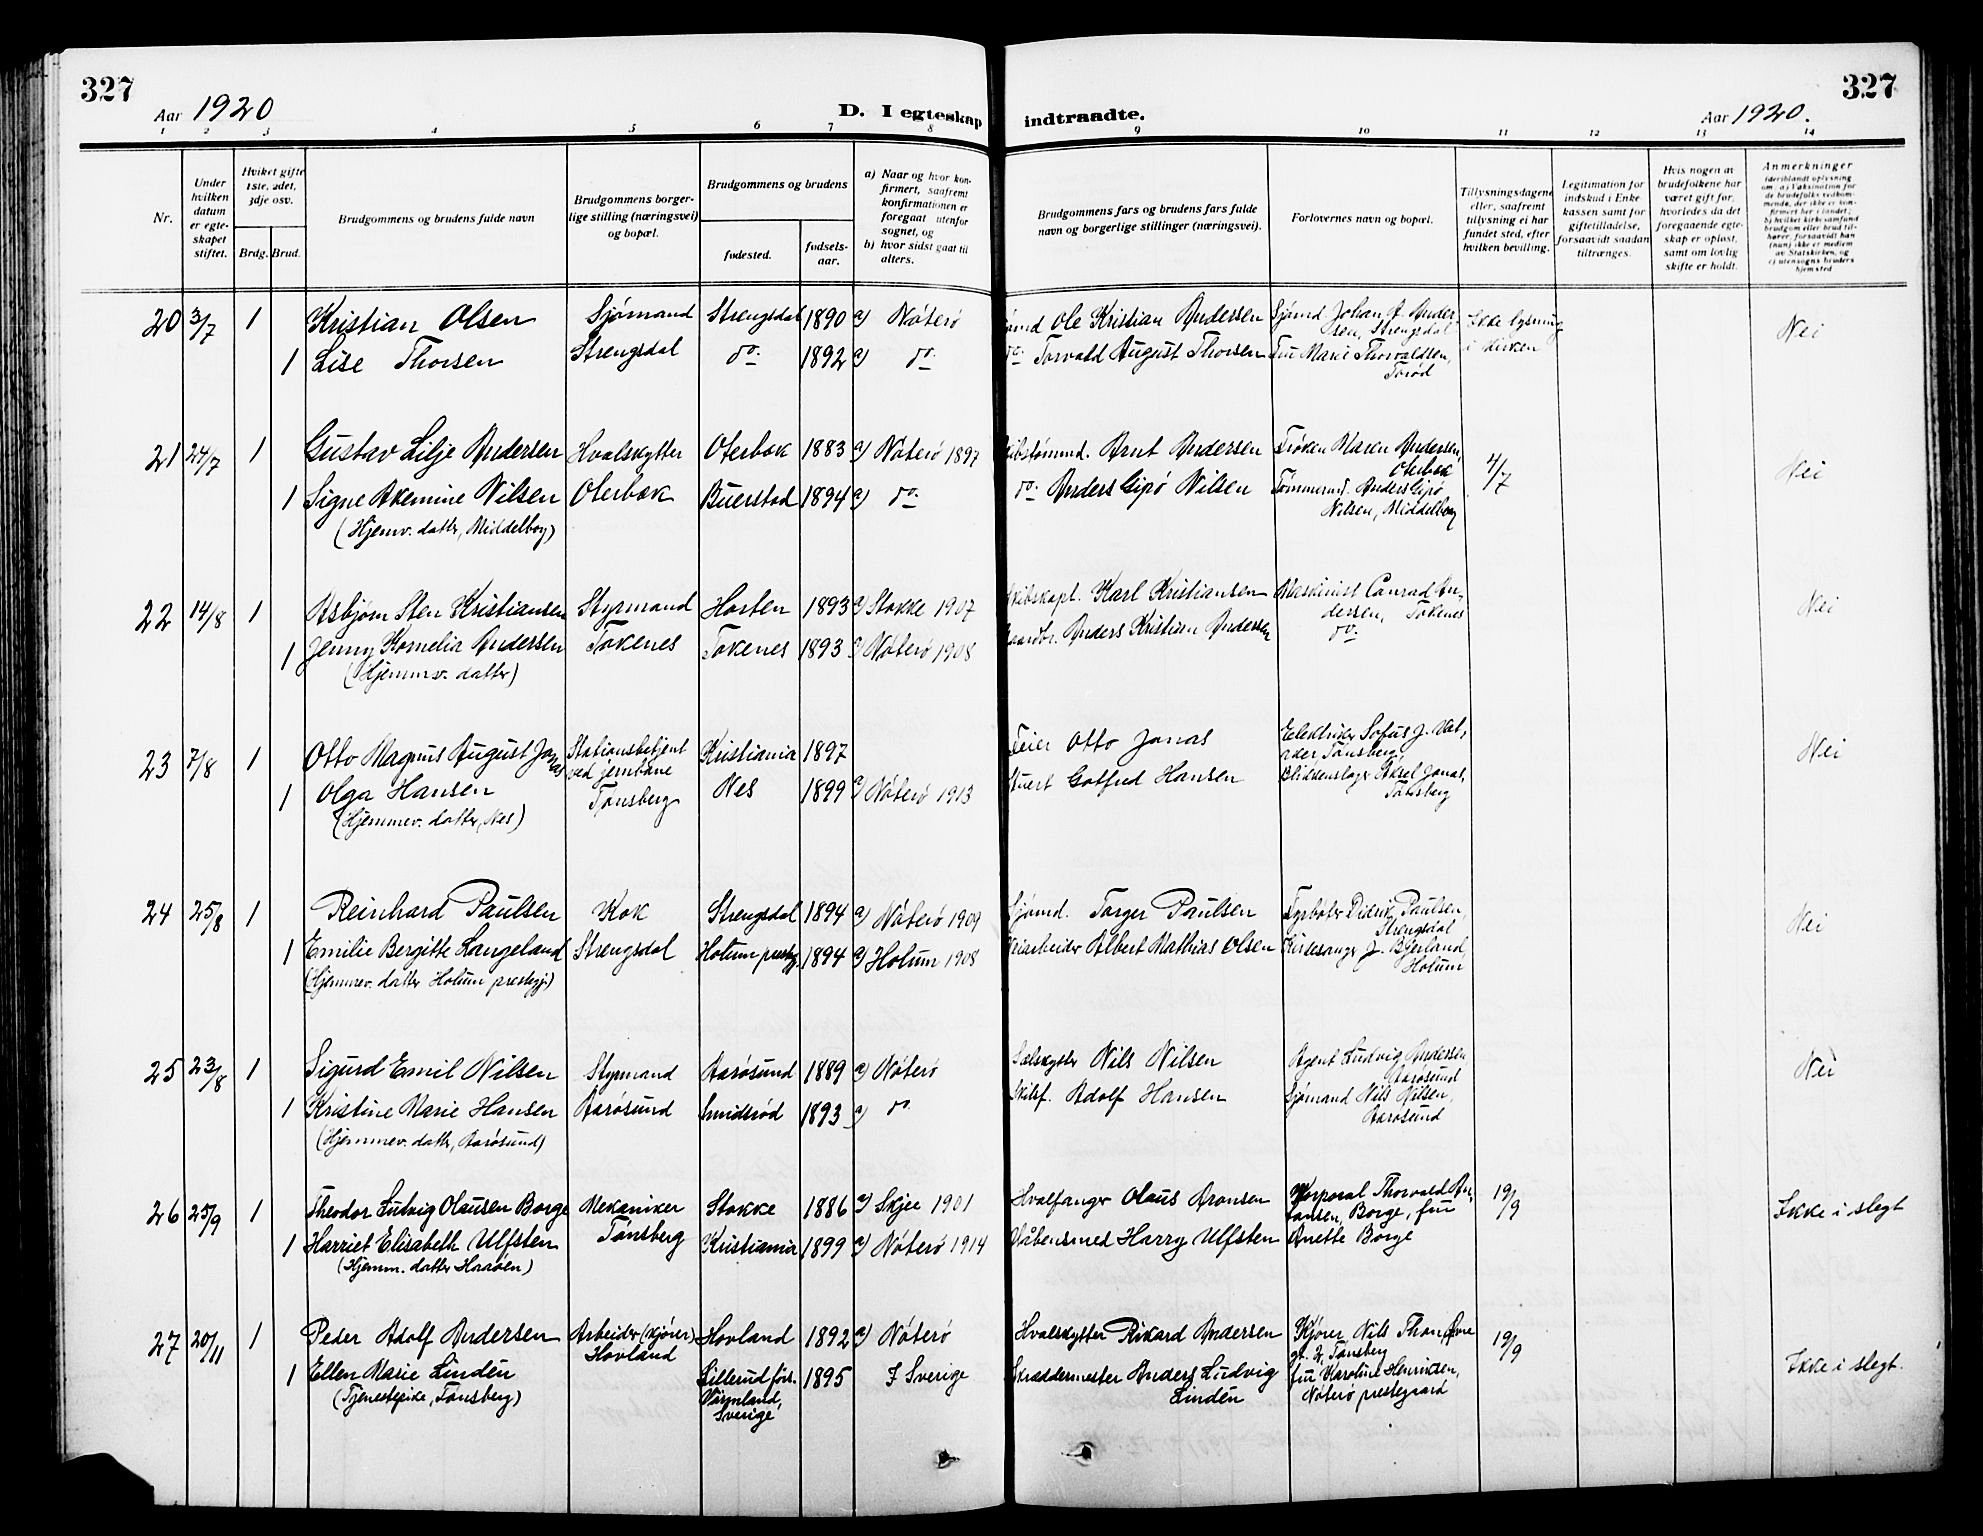 327
Aar 1920
D. I egteskap indtraadte.
Aar 1920.
327
1 2 3 4 5 6 7 8 9 10 11 12 13 14
Nr.
Under hvilken datum er egteskapet stiftet.
Hvilket gifte 1ste, 2det, 3dje osv.
Brdg. Brud.
Brudgommens og brudens fulde navn
Brudgommens borgerlige stilling (næringsvei) og bopæl.
Brudgommens og brudens
fødested.
fødselsaar.
a) Naar og hvor konfirmert, saafremt konfirmationen er foregaat utenfor sognet, og
b) hvor sidst gaat til alters.
Brudgommens fars og brudens fars fulde navn og borgerlige stillinger (næringsvei).
Forlovernes navn og bopæl.
Tillysningsdagene eller, saafremt tillysning ei har fundet sted, efter hvilken bevilling.
Legitimation for indskud i Enkekassen samt for giftetilladelse, forsaavidt saadan tiltrænges.
Hvis nogen at brudefolkene har været gift før, hvorledes da det foregaaende egteskap er opløst, samt om lovlig skifte er holdt.
Anmerkninger
(deriblandt oplysning om: a) Vaksination for de brudefolks vedkommende, der ikke er konfirmert her i landet; b) hvilket kirkesamfund brudgom eller brud tilhører, forsaavidt han (hun) ikke er medlem av Statskirken, og c) utensogns bruders hjemsted
20 3/7 1 Kristian Olsen Sjømand Strengsdal 1890 a) Nøterø Ole Kristian Andersen Sjømd Johan A. Andersen, Strengsdal Ikke lysning i kirken Nei
1 Lise Thorsen Strengsdal do. 1892 a) do. do. Torvald August Thorsen Fru Marie Thorvaldsen, Torød
21 24/7 1 Gustav Lilje Andersen Hvalskytter Oterbæk 1883 a) Nøterø 1897 Arnt Andersen Frøken Maren Andersen, Oterbæk 4/7 Nei
1 Signe Akemine Nilsen Oterbæk Buerstad 1894 a) do. do. Anders Gipø Nilsen Tømmermd. Anders Gipø Nilsen, Middelbog
(Hjemv. datter, Middelbog)
22 14/8 1 Asbjørn Sten Kristiansen Styrmand Horten 1893 a) Stokke 1907 Skibskapt. Karl Kristiansen Maskinist Conrad Andersen, Tokenes Nei
1 Jenny Kornelia Andersen Tokenes Tokenes 1893 a) Nøterø 1908 Gaardbr. Anders Kristian Andersen do.
(Hjemmv. datter)
23 7/8 1 Otto Magnus August Jonas Stationsbetjent ved jernbane Kristiania 1897 Feier Otto Jonas Elektriker Sofus J. Tønsberg, Nei
1 Olga Hansen Tønsberg Nes 1899 a) Nøterø 1913 Stuert Gotfred Hansen Blikkenslager Aksel Jonas, Tønsberg
(Hjemmev. datter, Nes)
24 25/8 1 Reinhard Paulsen Kok Strengsdal 1894 a) Nøterø 1909 Sjømd. Torger Paulsen Fyrbøter Didrik Paulsen, Strengsdal Nei
1 Emilie Bergitte Langeland Strengsdal Holum prestegj. 1894 a) Holum 1908 Albert Mathias Olsen Kirkesanger J. Bjerland, Holum
(Hjemmev. datter Holum prestegj.)
25 23/8 1 Sigurd Emil Nilsen Styrmand Aarøsund 1889 a) Nøterø Sælskytter Nils Nilsen Agent Ludvig Andersen Aarøsund Nei
1 Kristine Marie Hansen Aarøsund Smidsrød 1893 a) do. Skibsf. Adolf Hansen Sjømand Nils Nilsen, Aarøsund
(Hjemmev. datter, Aarøsund)
26 25/9 1 Theodor Ludvig Olausen Borge Mekaniker Stokke 1886 a) Skjee 1901 Hvalfanger Olaus Aronsen Korporal Thorvald Antonsen, Borge, fru 19/9 Ikke i slegt
1 Harriet Elisabeth Ulfsten Tønsberg Kristiania 1899 a) Nøterø 1914 Våbensmed Harry Ulfsten Anette Borge
(Hjemm. datter)
27 20/11 1 Peder Adolf Andersen Arbeider (kjører) Hovland Hovland 1892 a) Nøterø Hvalskytter Rikard Andersen Kjører Nils Thon, Øvre gt. 2, Tønsberg 19/9 Ikke i slegt.
1 Ellen Marie Lindén Lillerud förs. Värmland, Sverige 1895 I Sverige Skræddermester Anders Ludvig Lindén fru Karoline Henriksen, Nøterø prestegaard
(Tjenestepike, Tønsberg)